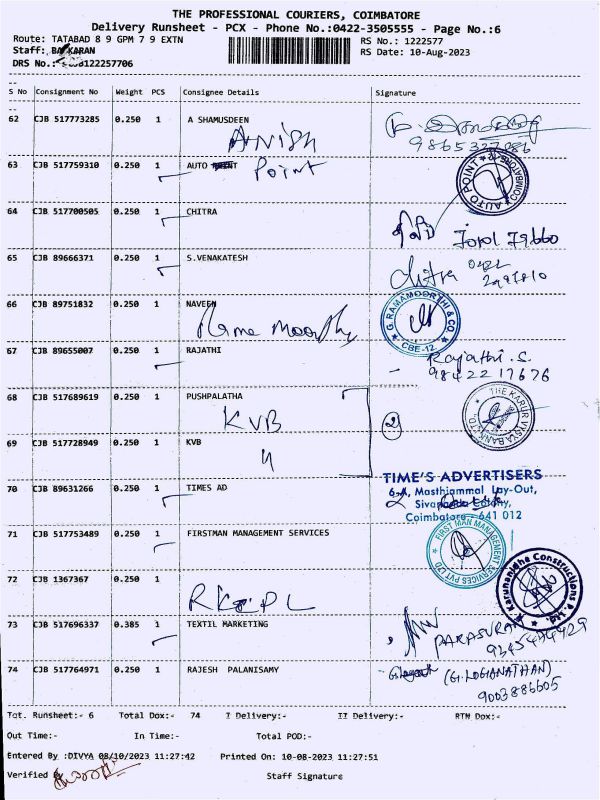 THE PROFESSIONAL COURIERS, COIMBATORE
Delivery Runsheet - PCX - Phone No.:0422-3505555 - Page No.:6
Route: TATABAD 8 9 GPM 7 9 EXTN
RS No.: 1222577
Staff: BASKARAN
RS Date: 10-Aug-2023
DRS No.: 122257706
S No Consignment No Weight PCS Consignee Details Signature
62 CJB 517773285 0.250 1 A SHAMUSDEEN
Anish
9865327286
63 CJB 517759310 0.250 1 AUTO POINT
Point
AUTO POINT COIMBATORE
64 CJB 517700505 0.250 1 CHITRA
65 CJB 89666371 0.250 1 S.VENAKATESH
Chitra
66 CJB 89751832 0.250 1 NAVEEN
Rama Moorthy
G. RAMAMOORTHI & CO CBE-12.
67 CJB 89655007 0.250 1 RAJATHI
Rajathi . S.
9842217676
68 CJB 517689619 0.250 1 PUSHPALATHA
KVB
2
THE KARUR VYSYA BANK LTD
69 CJB 517728949 0.250 1 KVB
"
TIME'S ADVERTISERS
70 CJB 89631266 0.250 1 TIMES AD
6-A, Masthiammal Lay-Out,
Sivananda Colony,
Coimbatore - 641 012
71 CJB 517753489 0.250 1 FIRSTMAN MANAGEMENT SERVICES
FIRST MAN MANAGEMENT SERVICES PVT LTD
72 CJB 1367367 0.250 1
RKCPL
Karunanidhe Constructions P. Ltd.
73 CJB 517696337 0.385 1 TEXTIL MARKETING
PARASURAM
9345474429
74 CJB 517764971 0.250 1 RAJESH PALANISAMY
(G. LOGIANATHAN)
9003886605
Tot. Runsheet:- 6 Total Dox:- 74 I Delivery:- II Delivery:- RTN Dox:-
Out Time:- In Time:- Total POD:-
Entered By :DIVYA 08/10/2023 11:27:42 Printed On: 10-08-2023 11:27:51
Verified By
Staff Signature